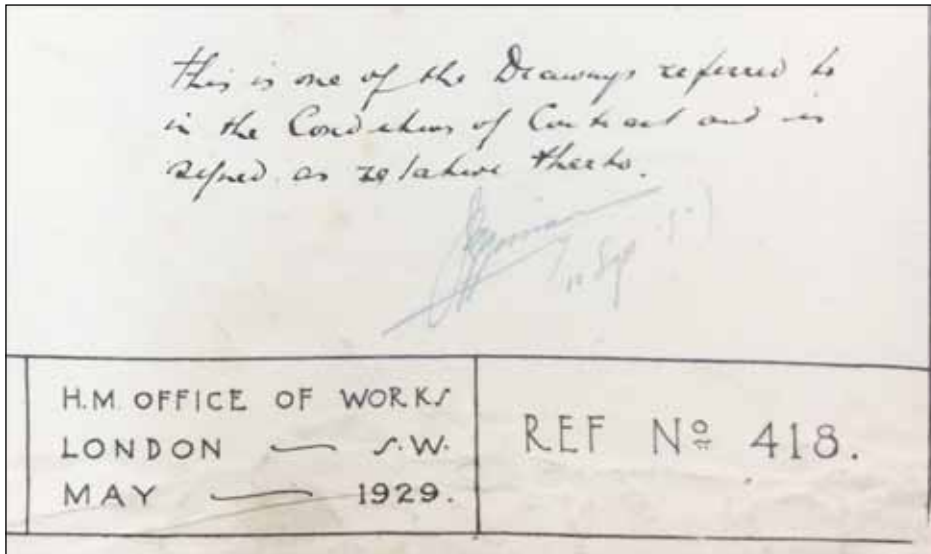 this is one of the Drawings referred to
in the Conditions of Contract and is
signed as relative thereto.
H.M. OFFICE OF WORKS
LONDON — S.W.
MAY — 1929.
REF Nº 418.